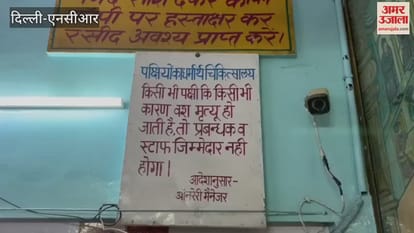 दिल्ली-एनसीआर
अमर उजाला
amarujala.com
पी पर हस्ताक्षर कर
रसीद अवश्य प्राप्त करें।
पक्षियों का धर्मार्थ चिकित्सालय
किसी भी पक्षी कि किसी भी
कारण वश मृत्यू हो
जाती है, तो प्रबन्धक व
स्टाफ जिम्मेदार नही
होगा।
आदेशानुसार-
ऑनरेरी मैनेजर